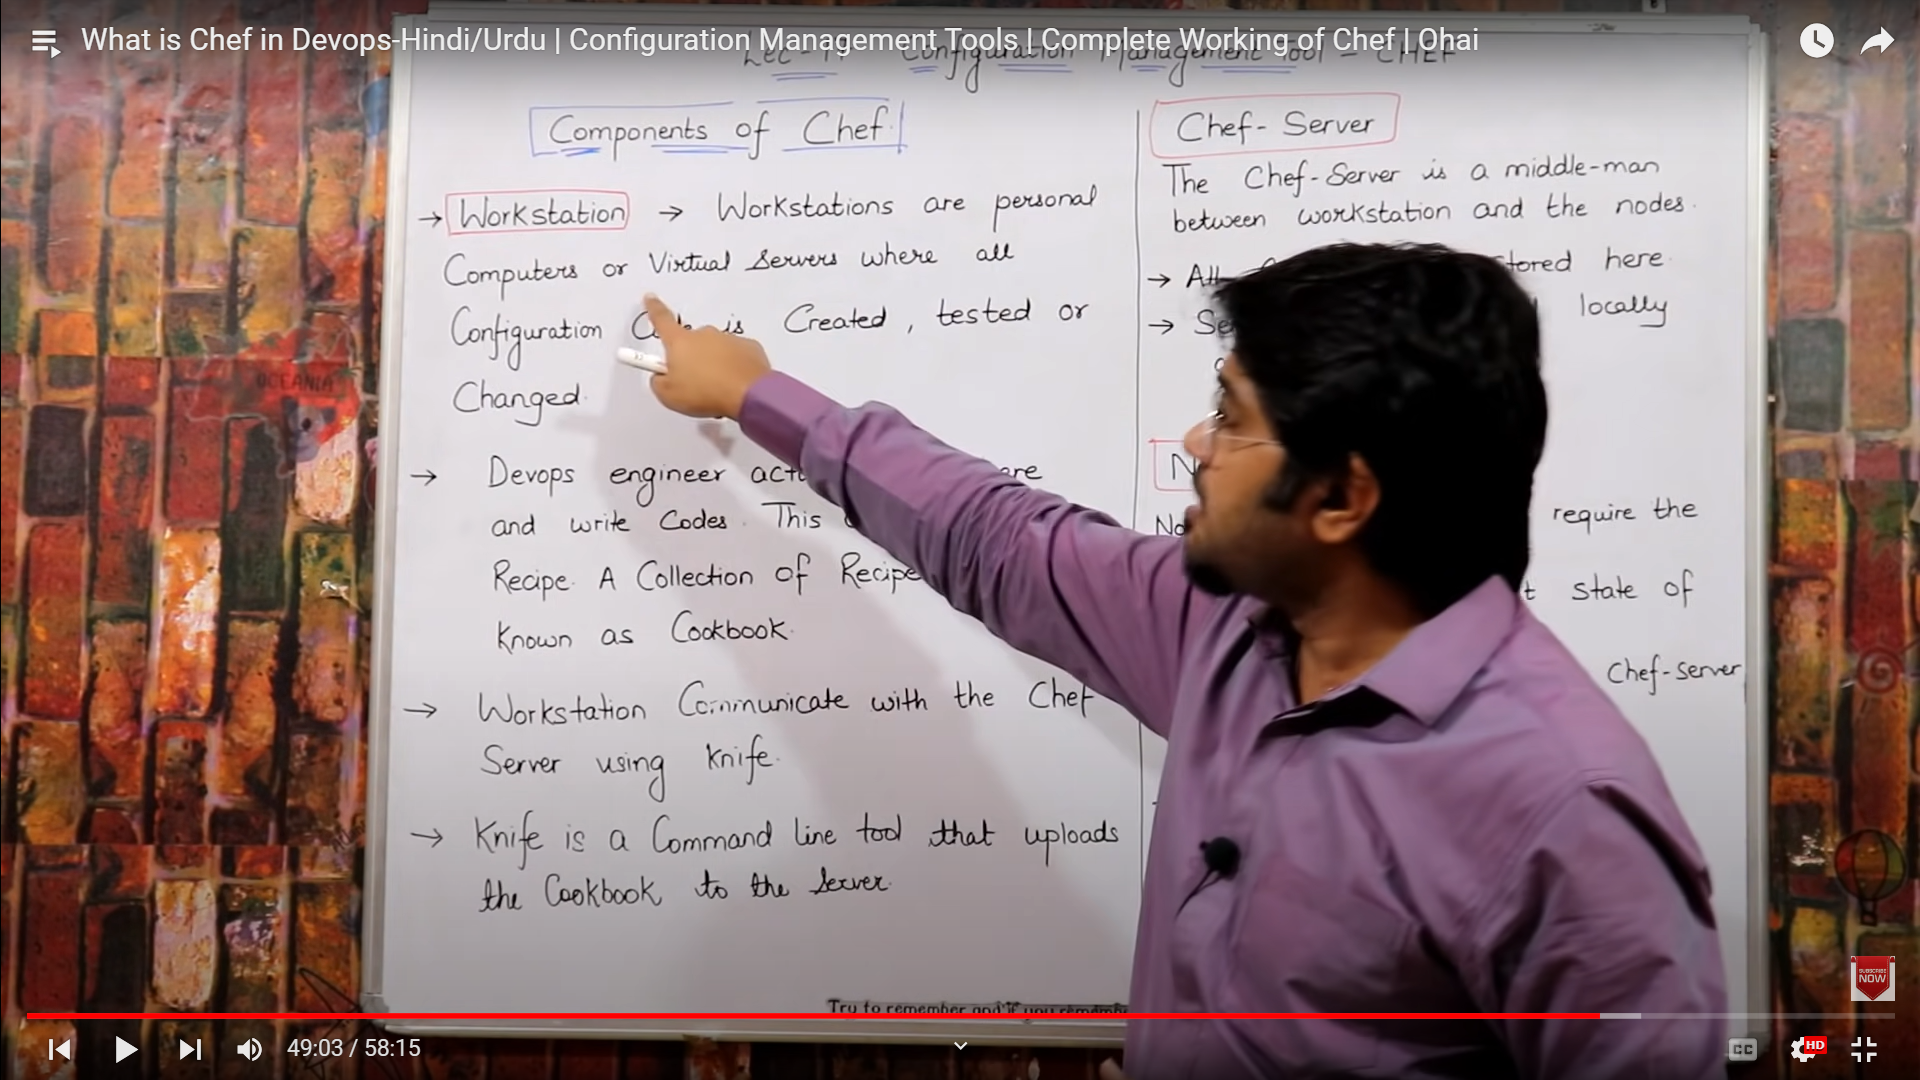 What is Chef in Devops-Hindi/Urdu | Configuration Management Tools | Complete Working of Chef | Ohai
Lec - Configuration Management Tool - CHEF
Components of Chef
→ Workstation → Workstations are personal
Computers or Virtual Servers where all
Configuration Code is Created, tested or
Changed.
→ Devops engineer
and write Codes. This
Recipe. A Collection of Recipe
known as Cookbook.
→ Workstation Communicate with the Chef
Server using knife.
→ Knife is a Command line tool that uploads
the Cookbook to the Server.
Chef-Server
The Chef-Server is a middle-man
between workstation and the nodes.
→ stored here
→ locally
require the
state of
Chef-server
Try to remember and if you
SUBSCRIBE
NOW
49:03 / 58:15
CC
HD